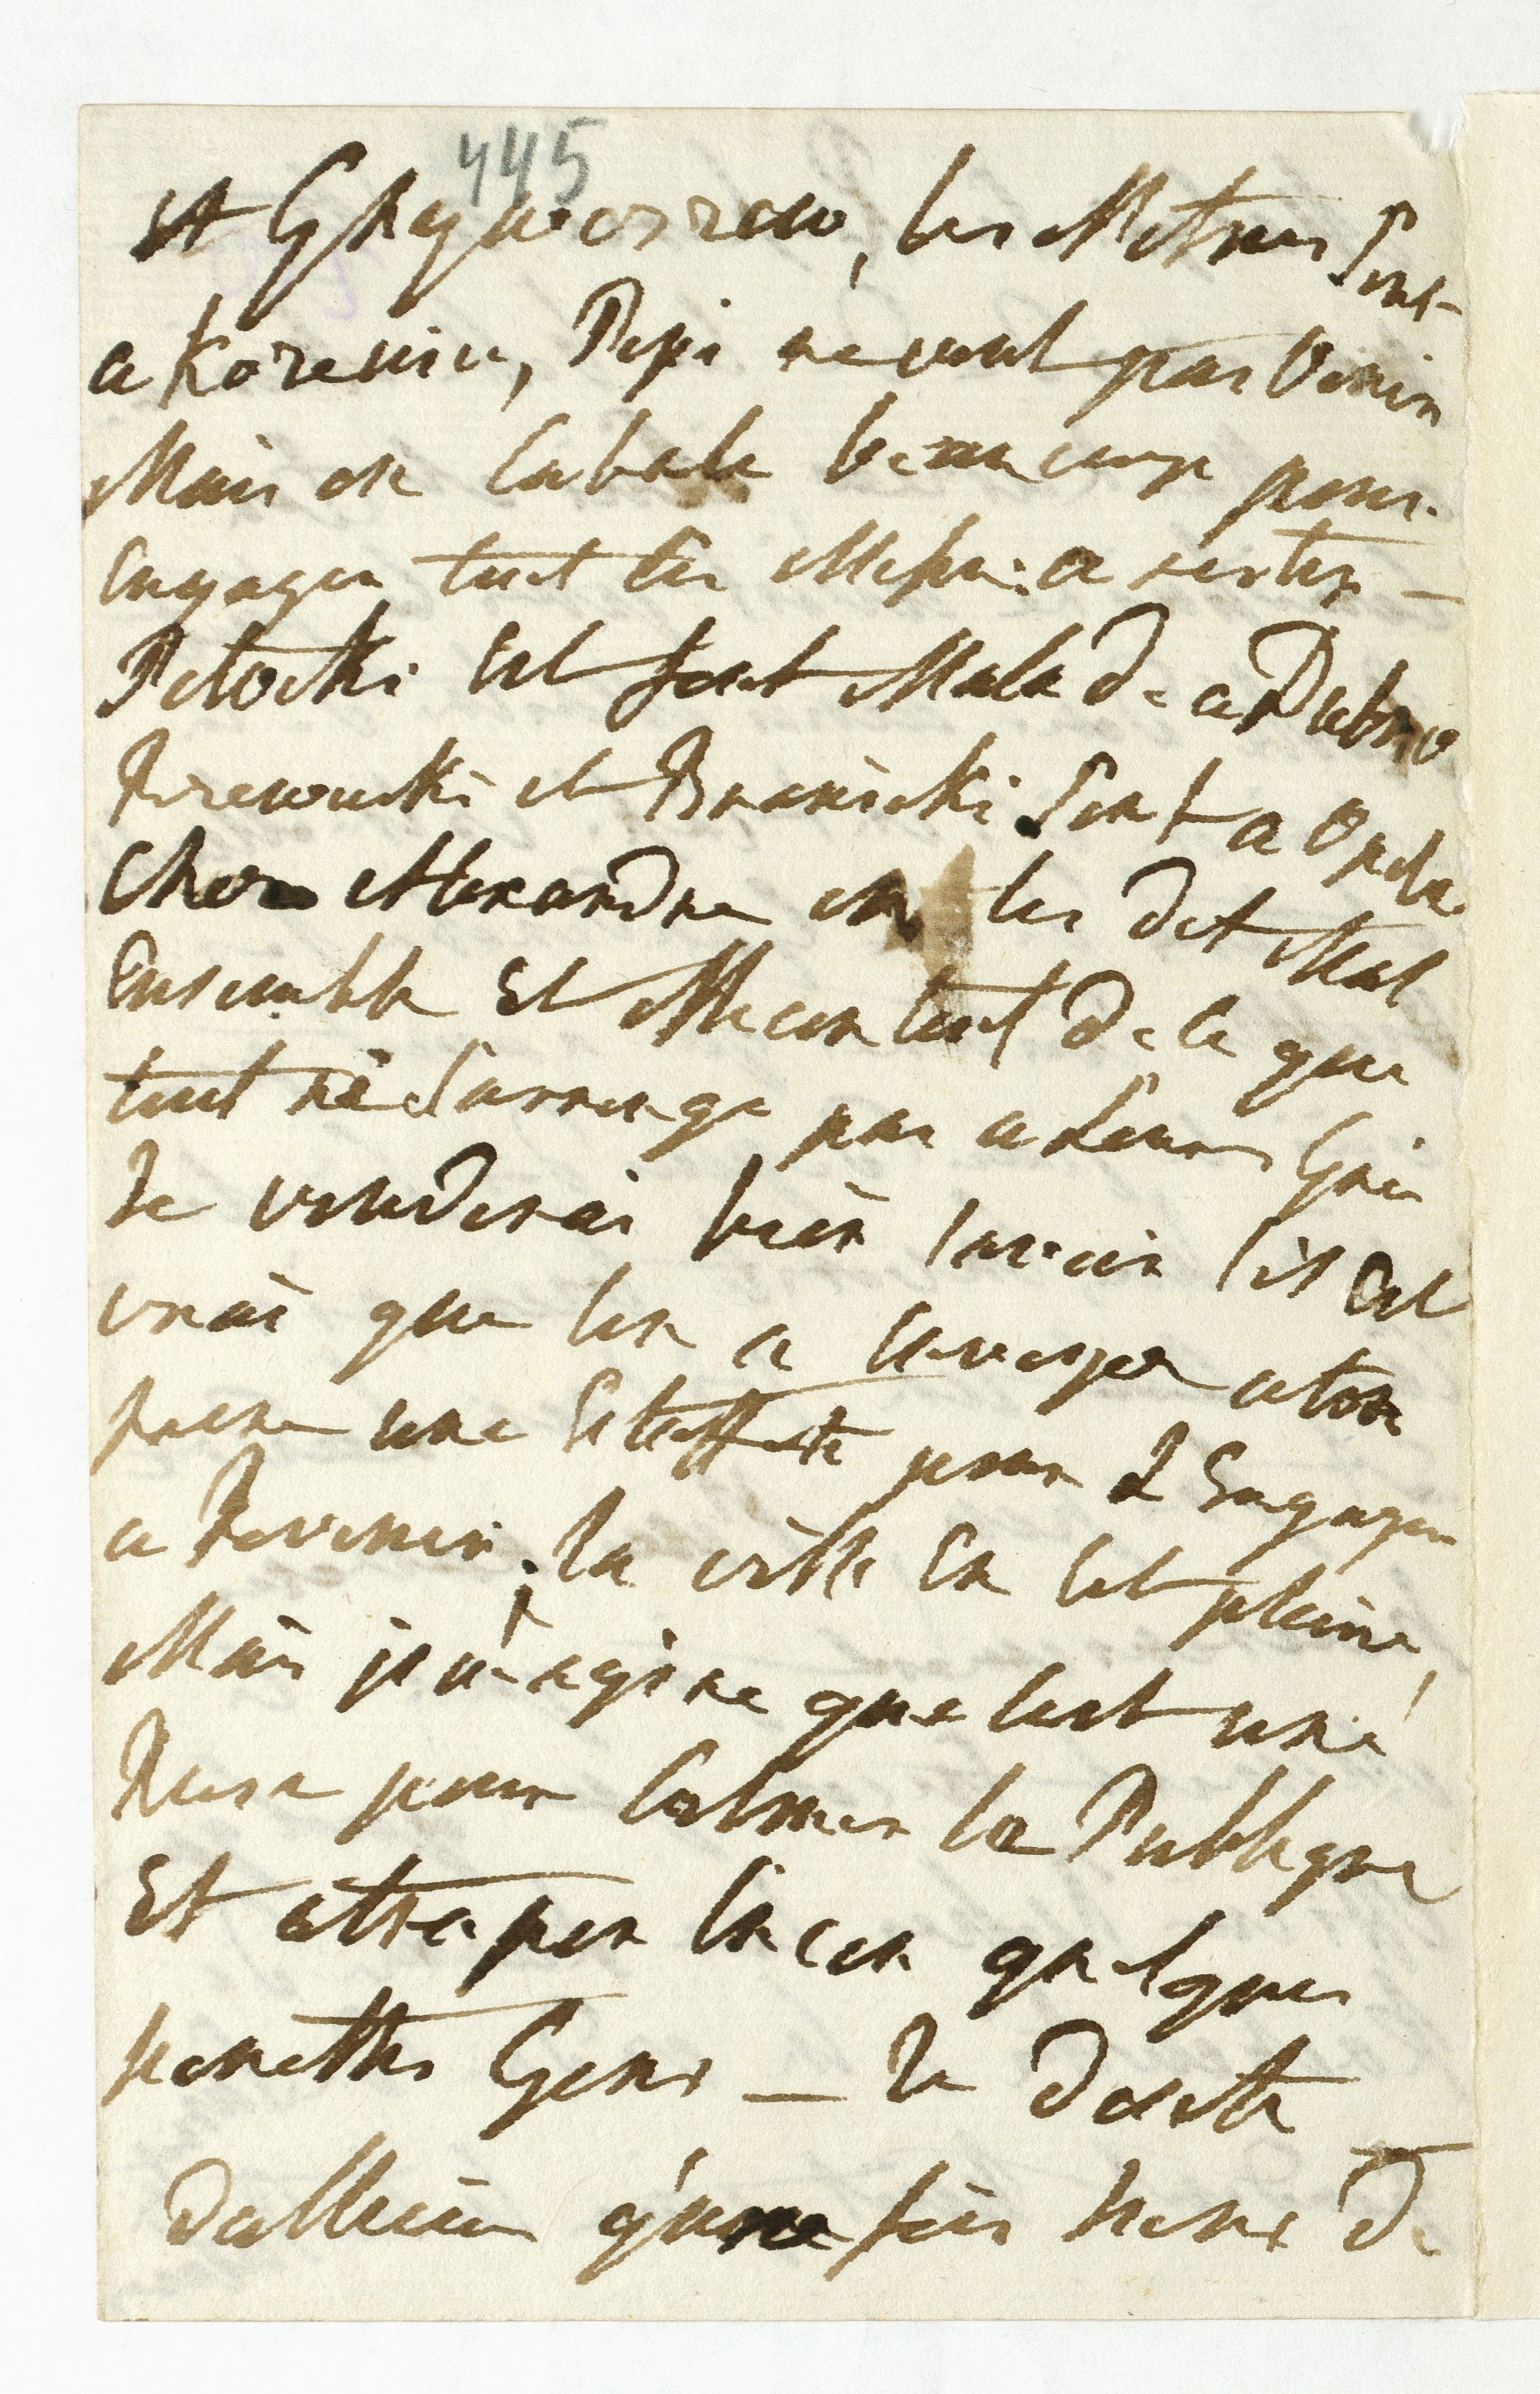 445
et Grzymorzew, les Metres sont
a Korenin, Pepi ne veut pas Venir
Mais on Cabale beaucoup pour
engager tout les a rester —
Potocki Est fort Malade a Dubno
Rzewuski et Braniski Sont a Opola
Chez Alexandre on les dit Mal
Ensemble Et Mecontent de ce que
tout ne Sarrenge pas a Leurs Gré
Je vouderai bien savoir sil est
vrai que lon a envoyer a ton
frere une Estaffette pour L Engager
a Revenir; la ville En Est pleine,
Mais jmagine que cest une
Ruse pour Calmer le Publique
Et atraper encor quelques
honettes Gens — Je doute
dallieurs qune fois hors de